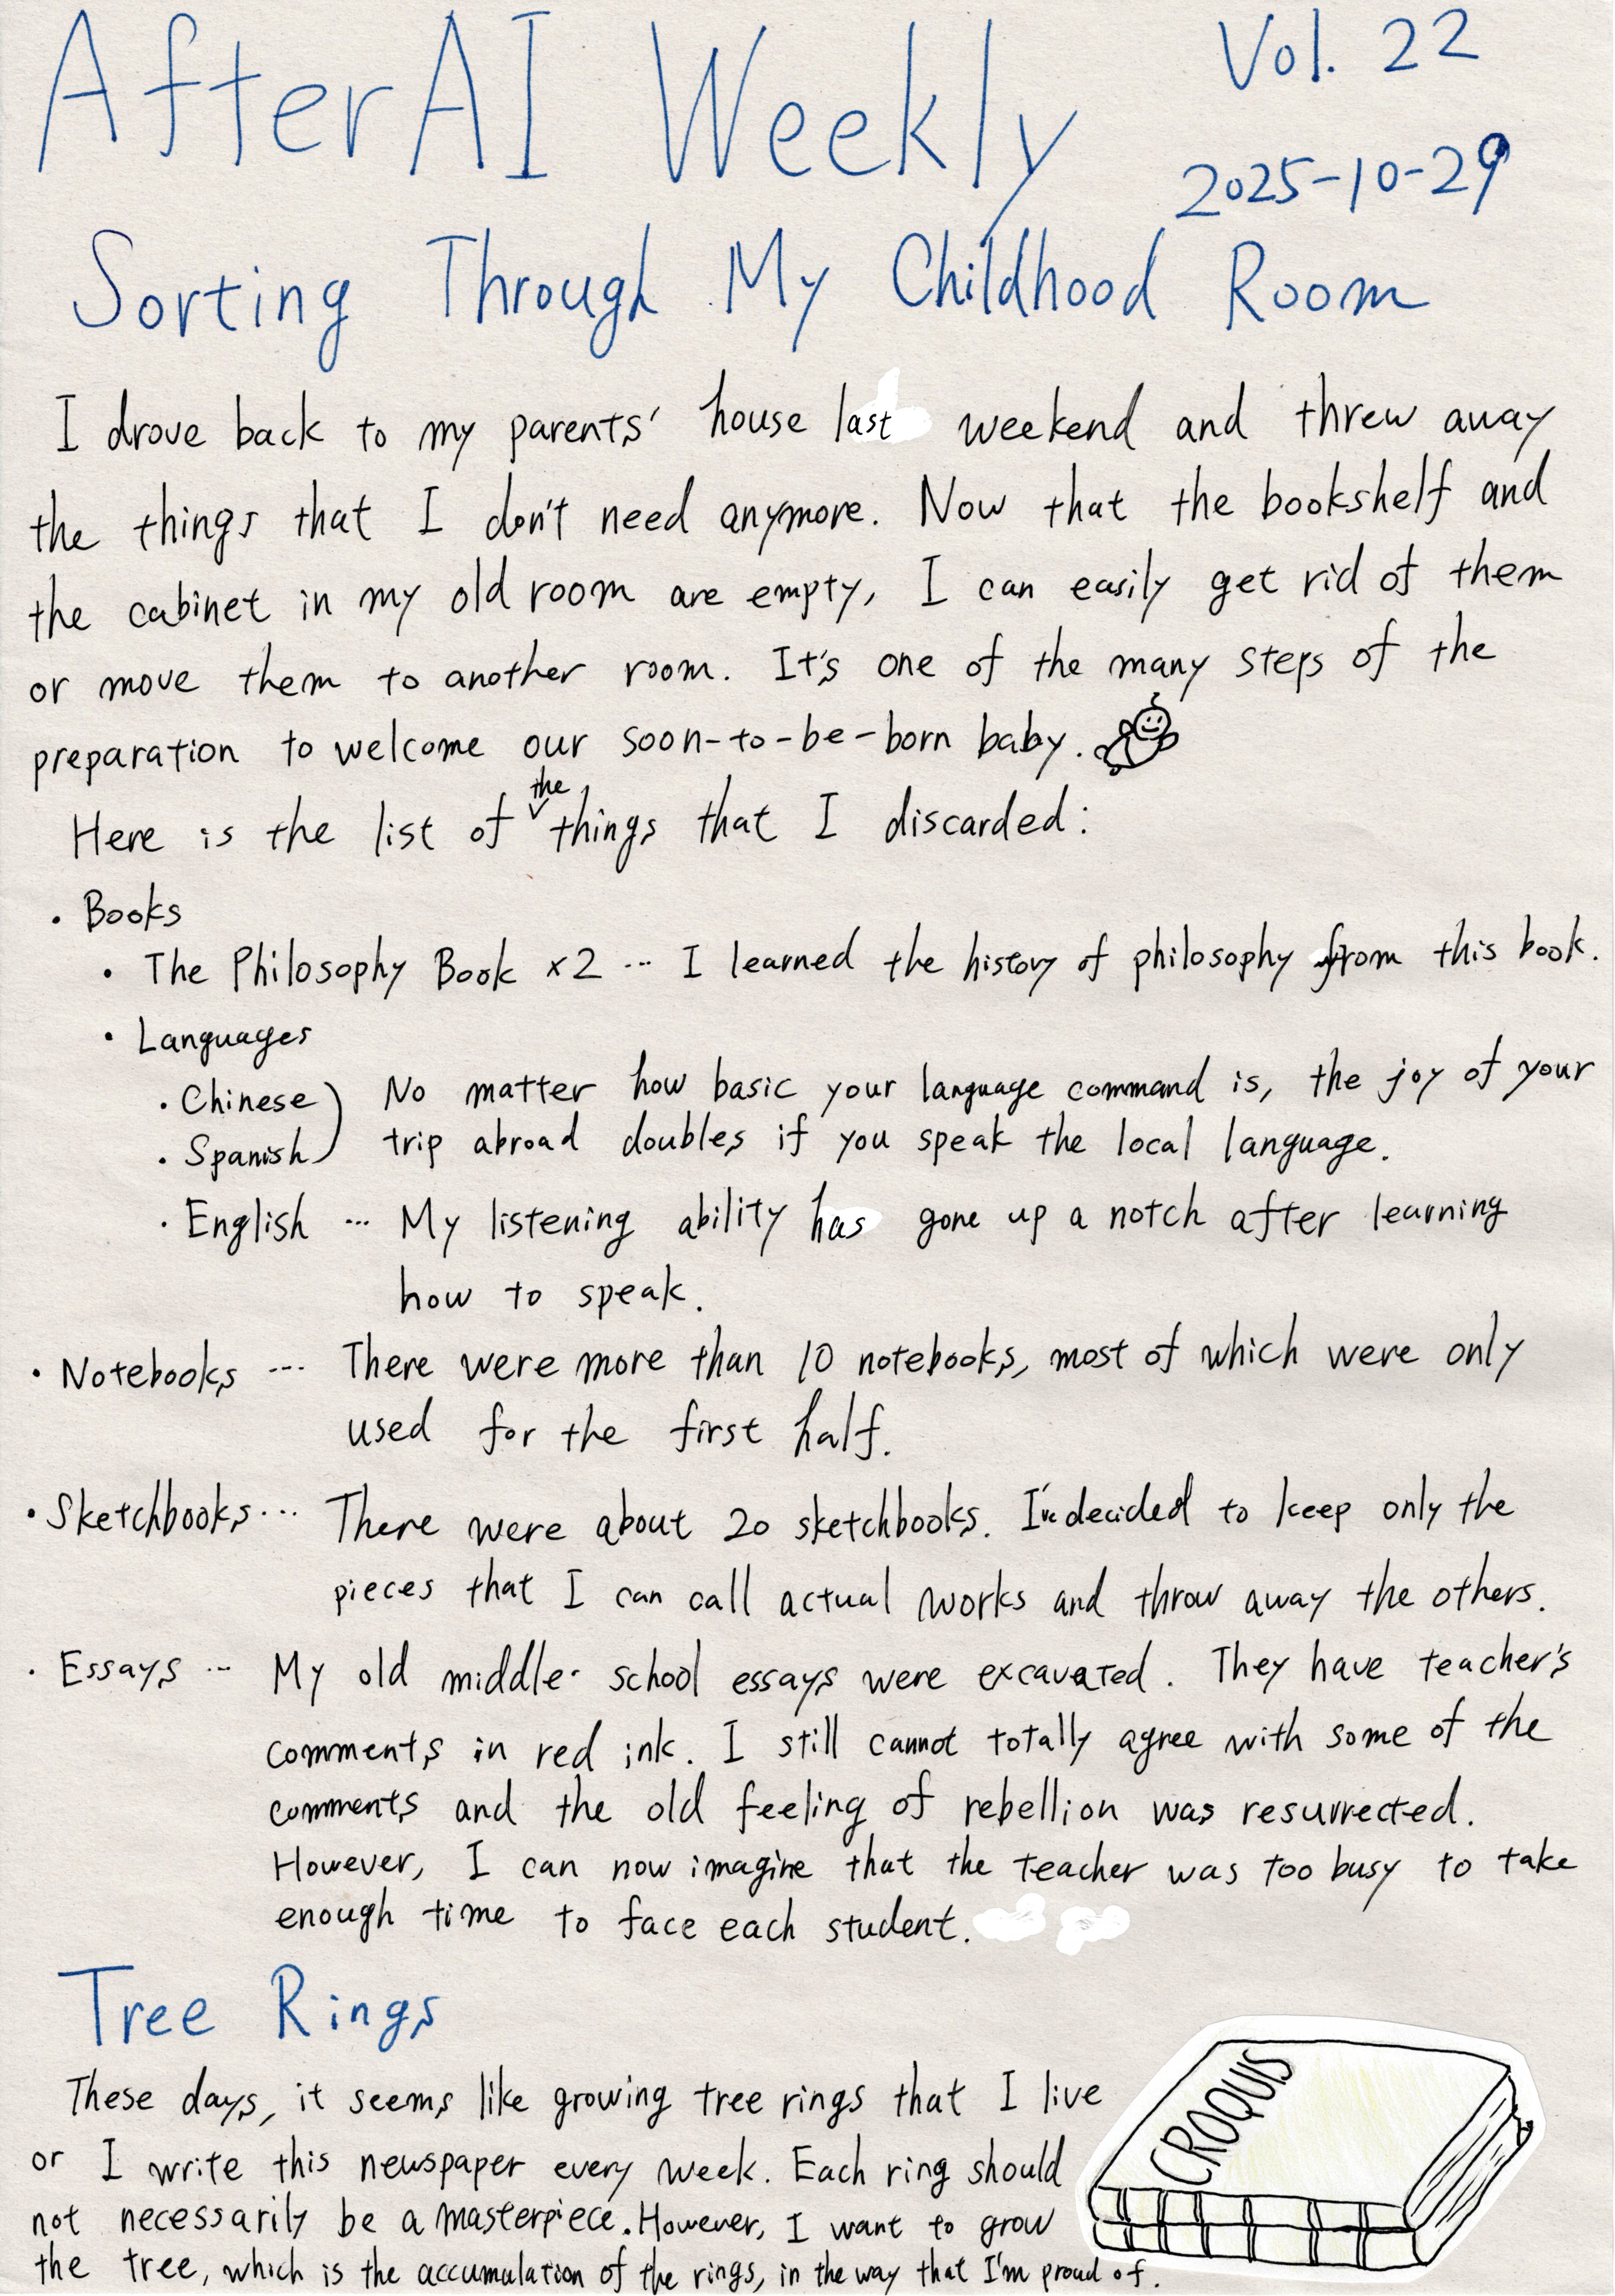 AfterAI Weekly Vol. 22
2025-10-29
Sorting Through My Childhood Room
I drove back to my parents' house last weekend and threw away
the things that I don't need anymore. Now that the bookshelf and
the cabinet in my old room are empty, I can easily get rid of them
or move them to another room. It's one of the many steps of the
preparation to welcome our soon-to-be-born baby.
Here is the list of the things that I discarded:
• Books
• The Philosophy Book ×2 … I learned the history of philosophy from this book.
• Languages
• Chinese ) No matter how basic your language command is, the joy of your
• Spanish ) trip abroad doubles if you speak the local language.
• English … My listening ability has gone up a notch after learning
how to speak.
• Notebooks … There were more than 10 notebooks, most of which were only
used for the first half.
• Sketchbooks … There were about 20 sketchbooks. I've decided to keep only the
pieces that I can call actual works and throw away the others.
• Essays … My old middle school essays were excavated. They have teacher's
comments in red ink. I still cannot totally agree with some of the
comments and the old feeling of rebellion was resurrected.
However, I can now imagine that the teacher was too busy to take
enough time to face each student.
Tree Rings
These days, it seems like growing tree rings that I live
or I write this newspaper every week. Each ring should
not necessarily be a masterpiece. However, I want to grow
the tree, which is the accumulation of the rings, in the way that I'm proud of.
CROQUIS